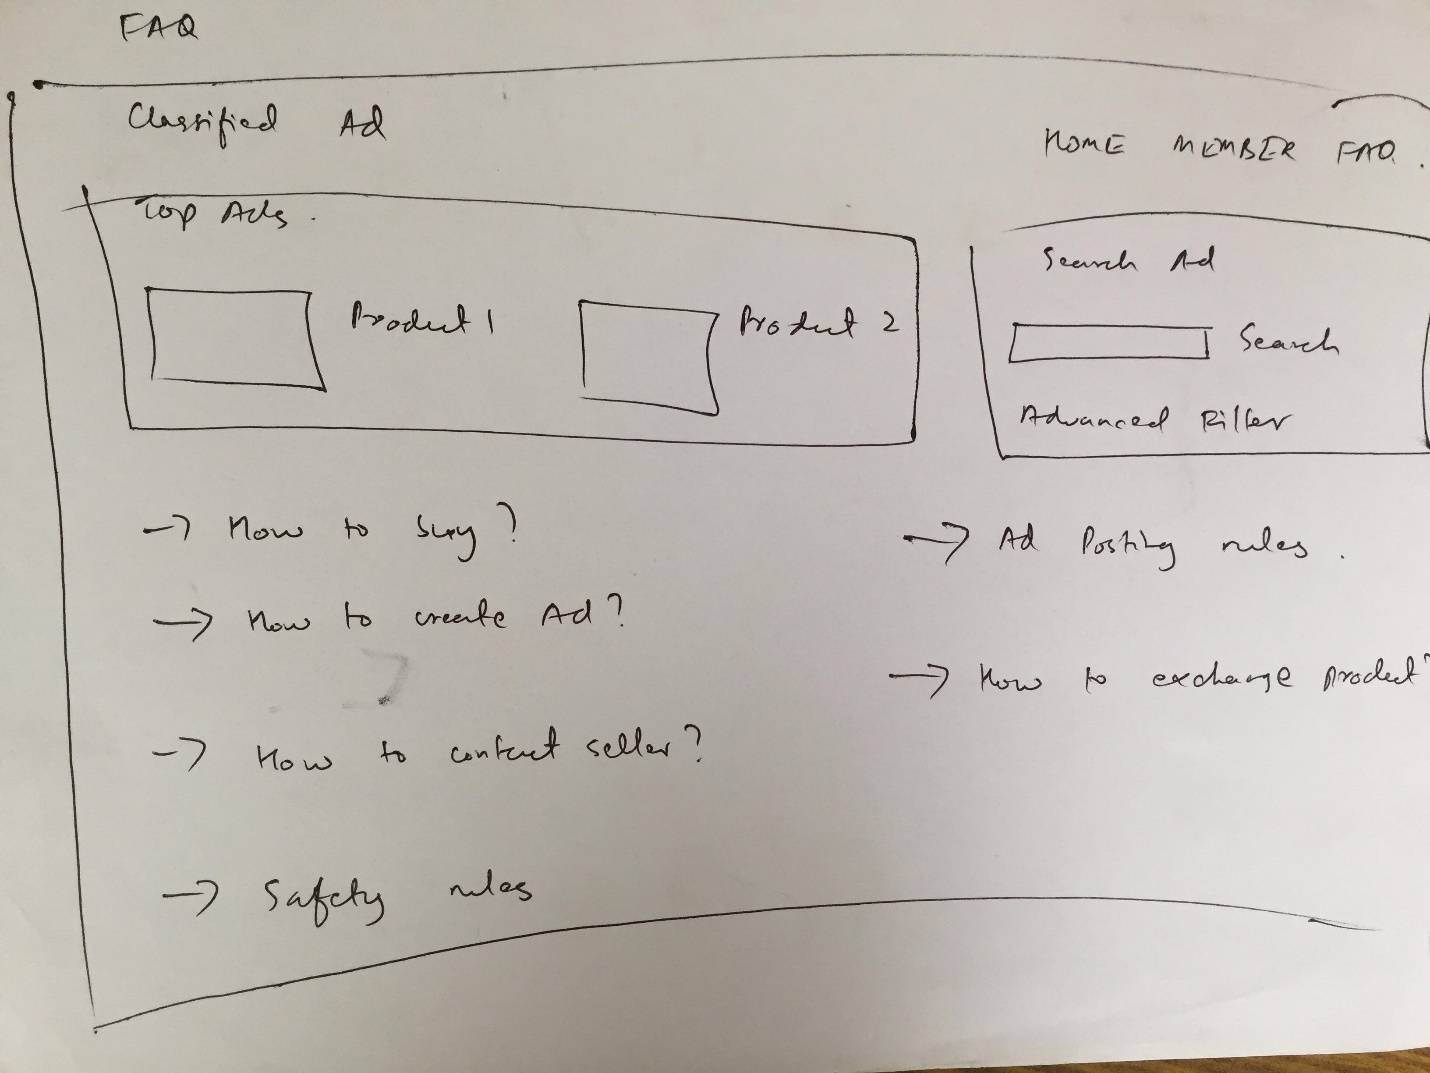 FAQ
Classified Ad
HOME MEMBER FAQ.
Top Ads.
Product 1
Product 2
Search Ad
Search
Advanced Filter
→ How to buy?
→ How to create Ad?
→ How to contact seller?
→ Safety rules
→ Ad Posting rules.
→ How to exchange product?